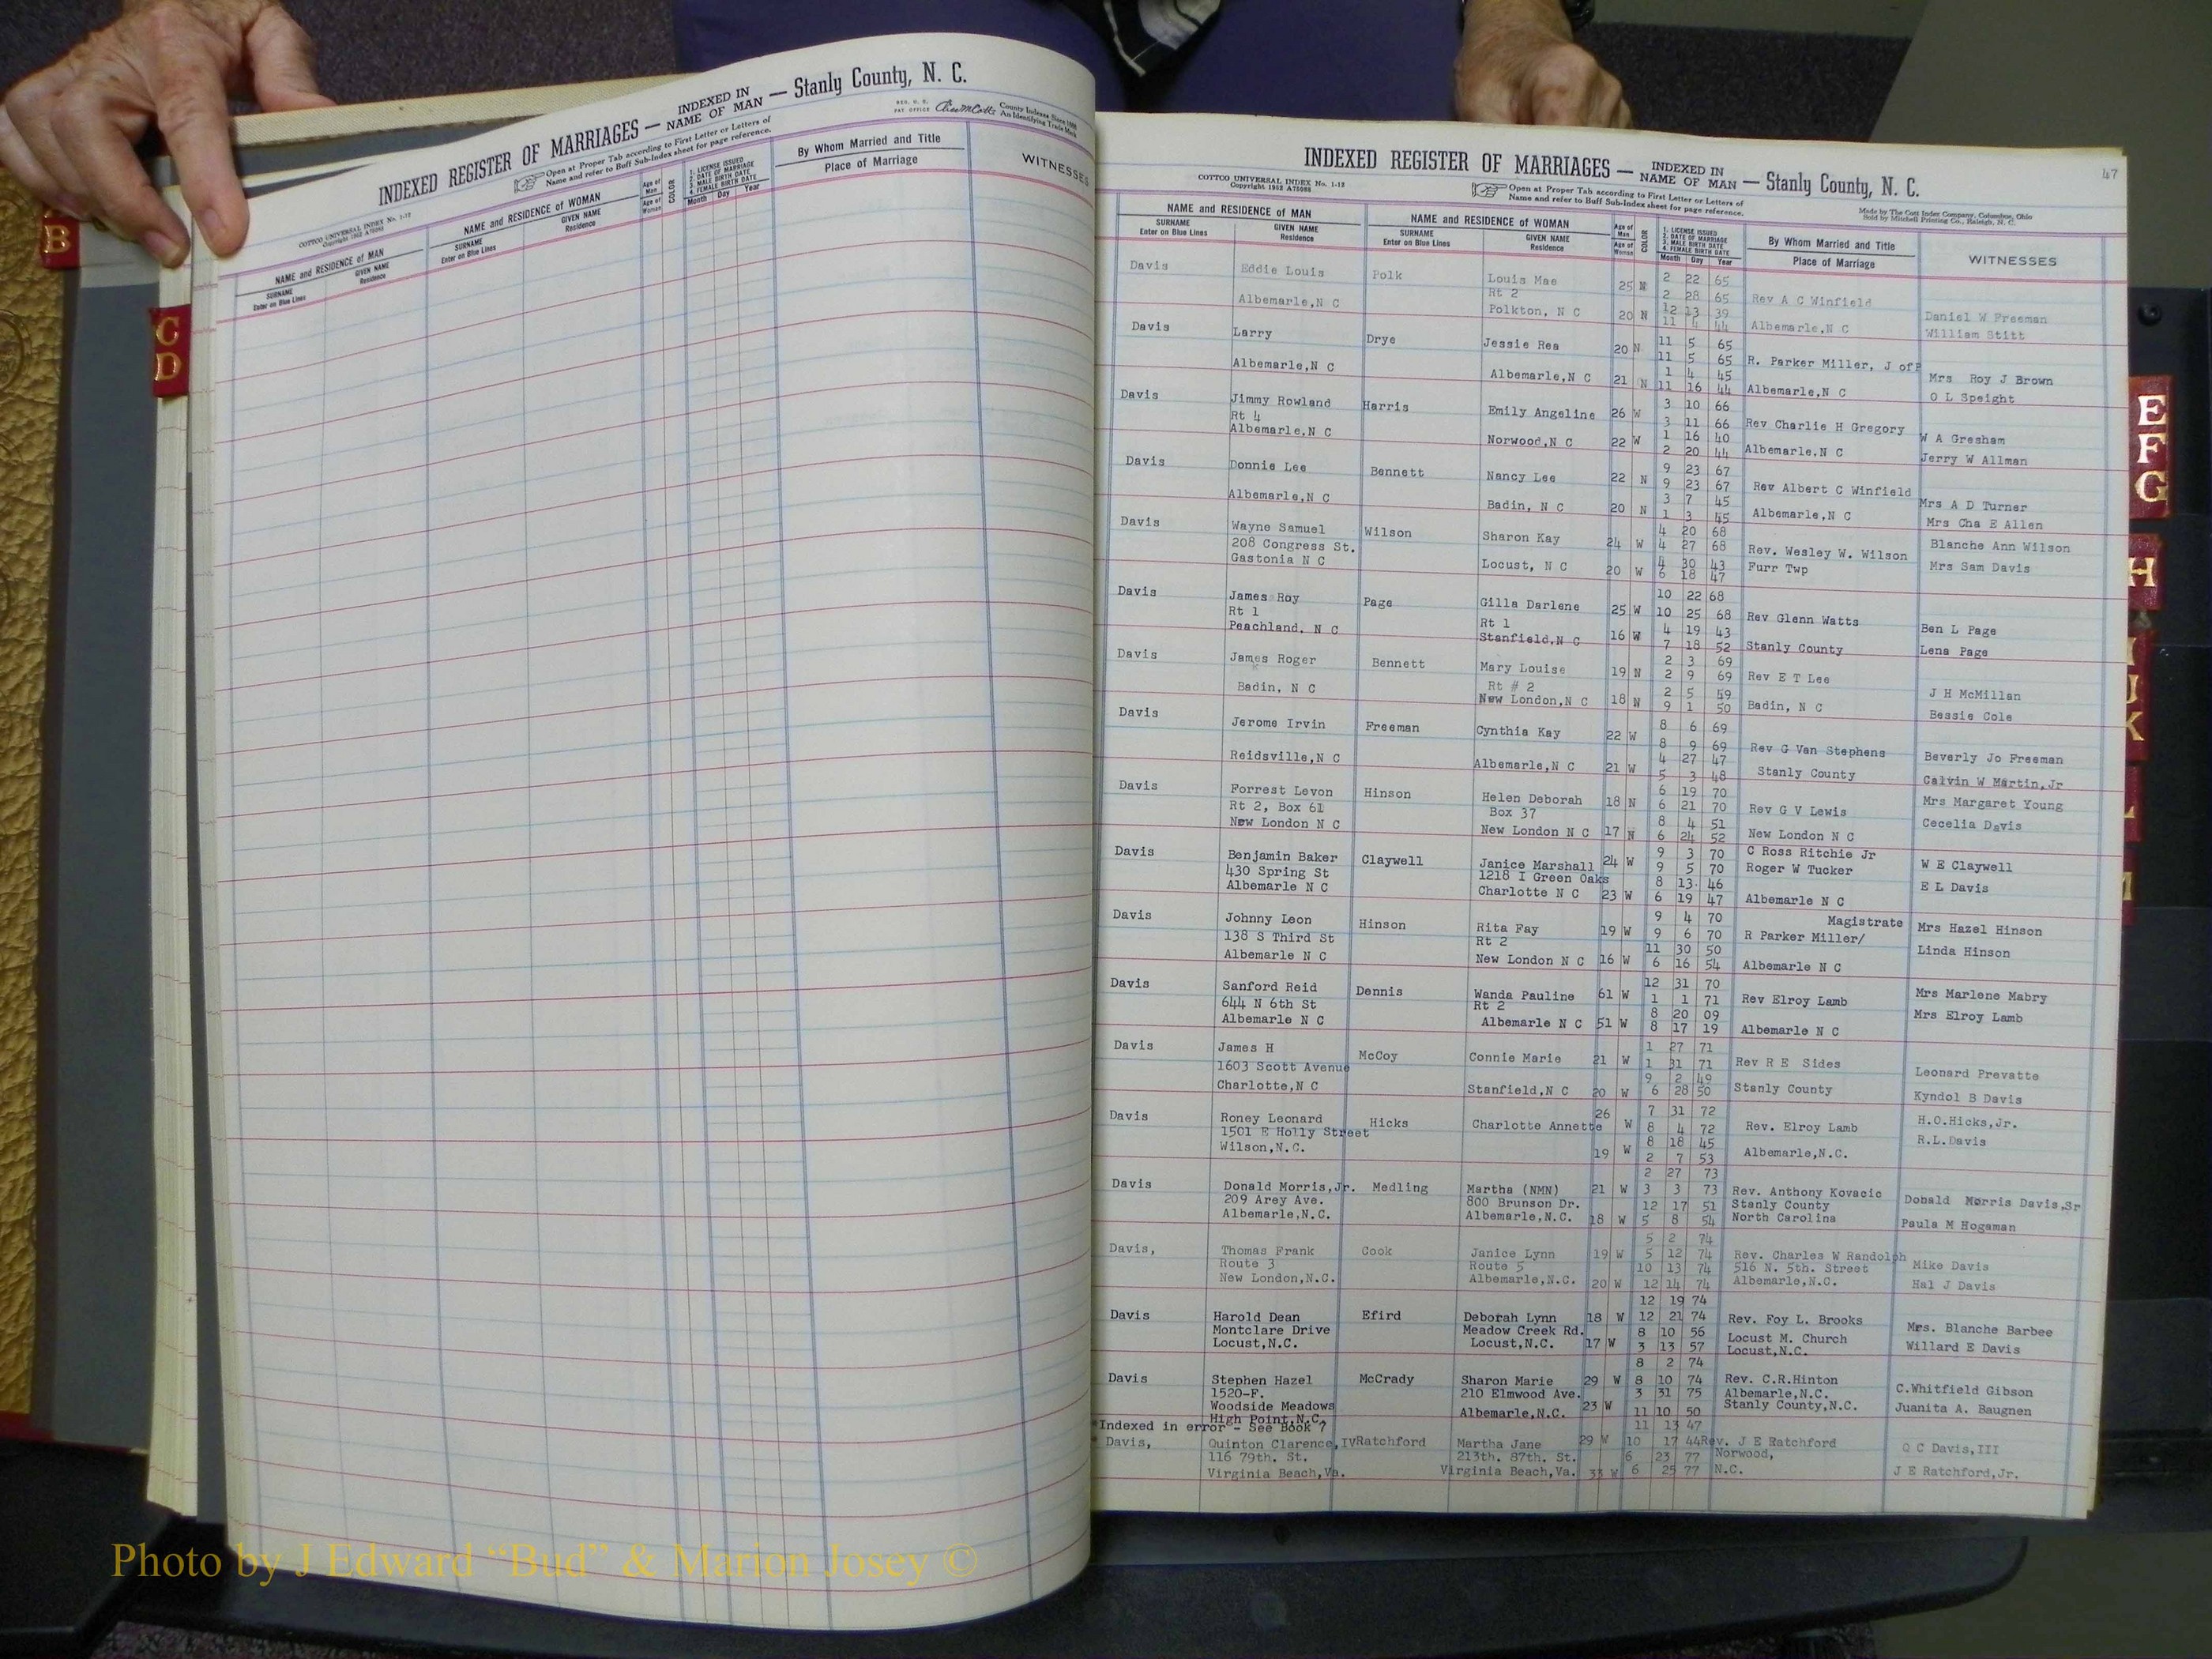 INDEXED REGISTER OF MARRIAGES — INDEXED IN NAME OF MAN — Stanly County, N. C.
COTTCO UNIVERSAL INDEX No. 1-12
Copyright 1952 A75098
Open at Proper Tab according to First Letter or Letters of
Name and refer to Buff Sub-Index sheet for page reference.
County Indexes Since 1888
An Identifying Trade Mark
NAME and RESIDENCE OF MAN
SURNAME
Enter on Blue Lines
GIVEN NAME
Residence
NAME and RESIDENCE OF WOMAN
SURNAME
Enter on Blue Lines
GIVEN NAME
Residence
Age of Man
Age of Woman
COLOR
1. LICENSE ISSUED
2. DATE OF MARRIAGE
3. MALE BIRTH DATE
4. FEMALE BIRTH DATE
Month Day Year
By Whom Married and Title
Place of Marriage
WITNESSES
B
C
D
INDEXED REGISTER OF MARRIAGES — INDEXED IN NAME OF MAN — Stanly County, N. C.
47
COTTCO UNIVERSAL INDEX No. 1-12
Copyright 1952 A75098
Open at Proper Tab according to First Letter or Letters of
Name and refer to Buff Sub-Index sheet for page reference.
Made by The Cott Index Company, Columbus, Ohio
Sold by Mitchell Printing Co., Raleigh, N. C.
NAME and RESIDENCE OF MAN
SURNAME
Enter on Blue Lines
GIVEN NAME
Residence
NAME and RESIDENCE OF WOMAN
SURNAME
Enter on Blue Lines
GIVEN NAME
Residence
Age of Man
Age of Woman
COLOR
1. LICENSE ISSUED
2. DATE OF MARRIAGE
3. MALE BIRTH DATE
4. FEMALE BIRTH DATE
Month Day Year
By Whom Married and Title
Place of Marriage
WITNESSES
Davis Eddie Louis Polk Louis Mae 25 N 2 22 65
Rt 2 2 28 65 Rev A C Winfield
Albemarle,N C Polkton, N C 20 N 12 13 39 Daniel W Freeman
11 4 44 Albemarle,N C William Stitt
Davis Larry Drye Jessie Rea 20 N 11 5 65
11 5 65 R. Parker Miller, J of P
Albemarle,N C Albemarle,N C 21 N 1 4 45 Mrs Roy J Brown
11 16 44 Albemarle,N C O L Speight
Davis Jimmy Rowland Harris Emily Angeline 26 W 3 10 66
Rt 4 3 11 66 Rev Charlie H Gregory
Albemarle,N C Norwood,N C 22 W 1 16 40 W A Gresham
2 20 44 Albemarle,N C Jerry W Allman
Davis Donnie Lee Bennett Nancy Lee 22 N 9 23 67
9 23 67 Rev Albert C Winfield
Albemarle,N C Badin, N C 20 N 3 7 45 Mrs A D Turner
1 3 45 Albemarle,N C Mrs Cha E Allen
Davis Wayne Samuel Wilson Sharon Kay 24 W 4 20 68
208 Congress St. 4 27 68 Rev. Wesley W. Wilson Blanche Ann Wilson
Gastonia N C Locust, N C 20 W 4 30 43 Furr Twp Mrs Sam Davis
6 18 47
Davis James Roy Page Gilla Darlene 25 W 10 22 68
Rt 1 Rt 1 10 25 68 Rev Glenn Watts
Peachland, N C Stanfield,N C 16 W 4 19 43 Ben L Page
7 18 52 Stanly County Lena Page
Davis James Roger Bennett Mary Louise 19 N 2 3 69
Rt # 2 2 9 69 Rev E T Lee
Badin, N C New London,N C 18 N 2 5 J H McMillan
9 1 50 Badin, N C Bessie Cole
Davis Jerome Irvin Freeman Cynthia Kay 22 W 8 6 69
8 9 69 Rev G Van Stephens
Reidsville,N C Albemarle,N C 21 W 4 27 47 Beverly Jo Freeman
5 3 48 Stanly County Calvin W Martin,Jr
Davis Forrest Levon Hinson Helen Deborah 18 N 6 19 70
Rt 2, Box 61 Box 37 6 21 70 Rev G V Lewis Mrs Margaret Young
New London N C New London N C 17 N 8 4 51 Cecelia Davis
6 24 52 New London N C
Davis Benjamin Baker Claywell Janice Marshall 24 W 9 3 70 C Ross Ritchie Jr
430 Spring St 1218 I Green Oaks 9 5 70 Roger W Tucker W E Claywell
Albemarle N C Charlotte N C 23 W 8 13 46 E L Davis
6 19 47 Albemarle N C
Davis Johnny Leon Hinson Rita Fay 19 W 9 4 70 Magistrate
138 S Third St Rt 2 9 6 70 R Parker Miller/ Mrs Hazel Hinson
Albemarle N C New London N C 16 W 11 30 50 Linda Hinson
6 16 54 Albemarle N C
Davis Sanford Reid Dennis Wanda Pauline 61 W 12 31 70
644 N 6th St Rt 2 1 1 71 Rev Elroy Lamb Mrs Marlene Mabry
Albemarle N C Albemarle N C 51 W 8 20 09 Mrs Elroy Lamb
8 17 19 Albemarle N C
Davis James H McCoy Connie Marie 21 W 1 27 71
1603 Scott Avenue 1 31 71 Rev R E Sides
Charlotte,N C Stanfield,N C 20 W 9 2 49 Leonard Prevatte
6 28 50 Stanly County Kyndol B Davis
Davis Roney Leonard Hicks Charlotte Annette 26 W 7 31 72
1501 E Holly Street 8 4 72 Rev. Elroy Lamb H.O.Hicks,Jr.
Wilson,N.C. 19 W 8 18 45 R.L.Davis
2 7 53 Albemarle,N.C.
Davis Donald Morris,Jr. Medling Martha (NMN) 21 W 2 27 73
209 Arey Ave. 800 Brunson Dr. 3 3 73 Rev. Anthony Kovacic
Albemarle,N.C. Albemarle,N.C. 18 W 12 17 51 Stanly County Donald Morris Davis,Sr
5 8 54 North Carolina Paula M Hogaman
Davis, Thomas Frank Cook Janice Lynn 19 W 5 2 74
Route 3 Route 5 5 12 74 Rev. Charles W Randolph
New London,N.C. Albemarle,N.C. 20 W 10 13 74 516 N. 5th. Street Mike Davis
12 14 74 Albemarle,N.C. Hal J Davis
Davis Harold Dean Efird Deborah Lynn 18 W 12 19 74
Montclare Drive Meadow Creek Rd. 12 21 74 Rev. Foy L. Brooks
Locust,N.C. Locust,N.C. 17 W 8 10 56 Locust M. Church Mrs. Blanche Barbee
3 13 57 Locust,N.C. Willard E Davis
Davis Stephen Hazel McCrady Sharon Marie 29 W 8 2 74
1520-F. 210 Elmwood Ave. 8 10 74 Rev. C.R.Hinton
Woodside Meadows 23 W 3 31 75 Albemarle,N.C. C.Whitfield Gibson
High Point,N.C. Albemarle,N.C. 11 10 50 Stanly County,N.C. Juanita A. Baugnen
*Indexed in error - See Book 7 11 13 47
* Davis, Quinton Clarence,IV Ratchford Martha Jane 29 W 10 17 44 Rev. J E Ratchford
116 79th. St. 213th. 87th. St. 6 23 77 Norwood, Q C Davis,III
Virginia Beach,Va. Virginia Beach,Va. 33 W 6 25 77 N.C. J E Ratchford,Jr.
E
F
G
H
K
L
Photo by J Edward “Bud” & Marion Josey ©